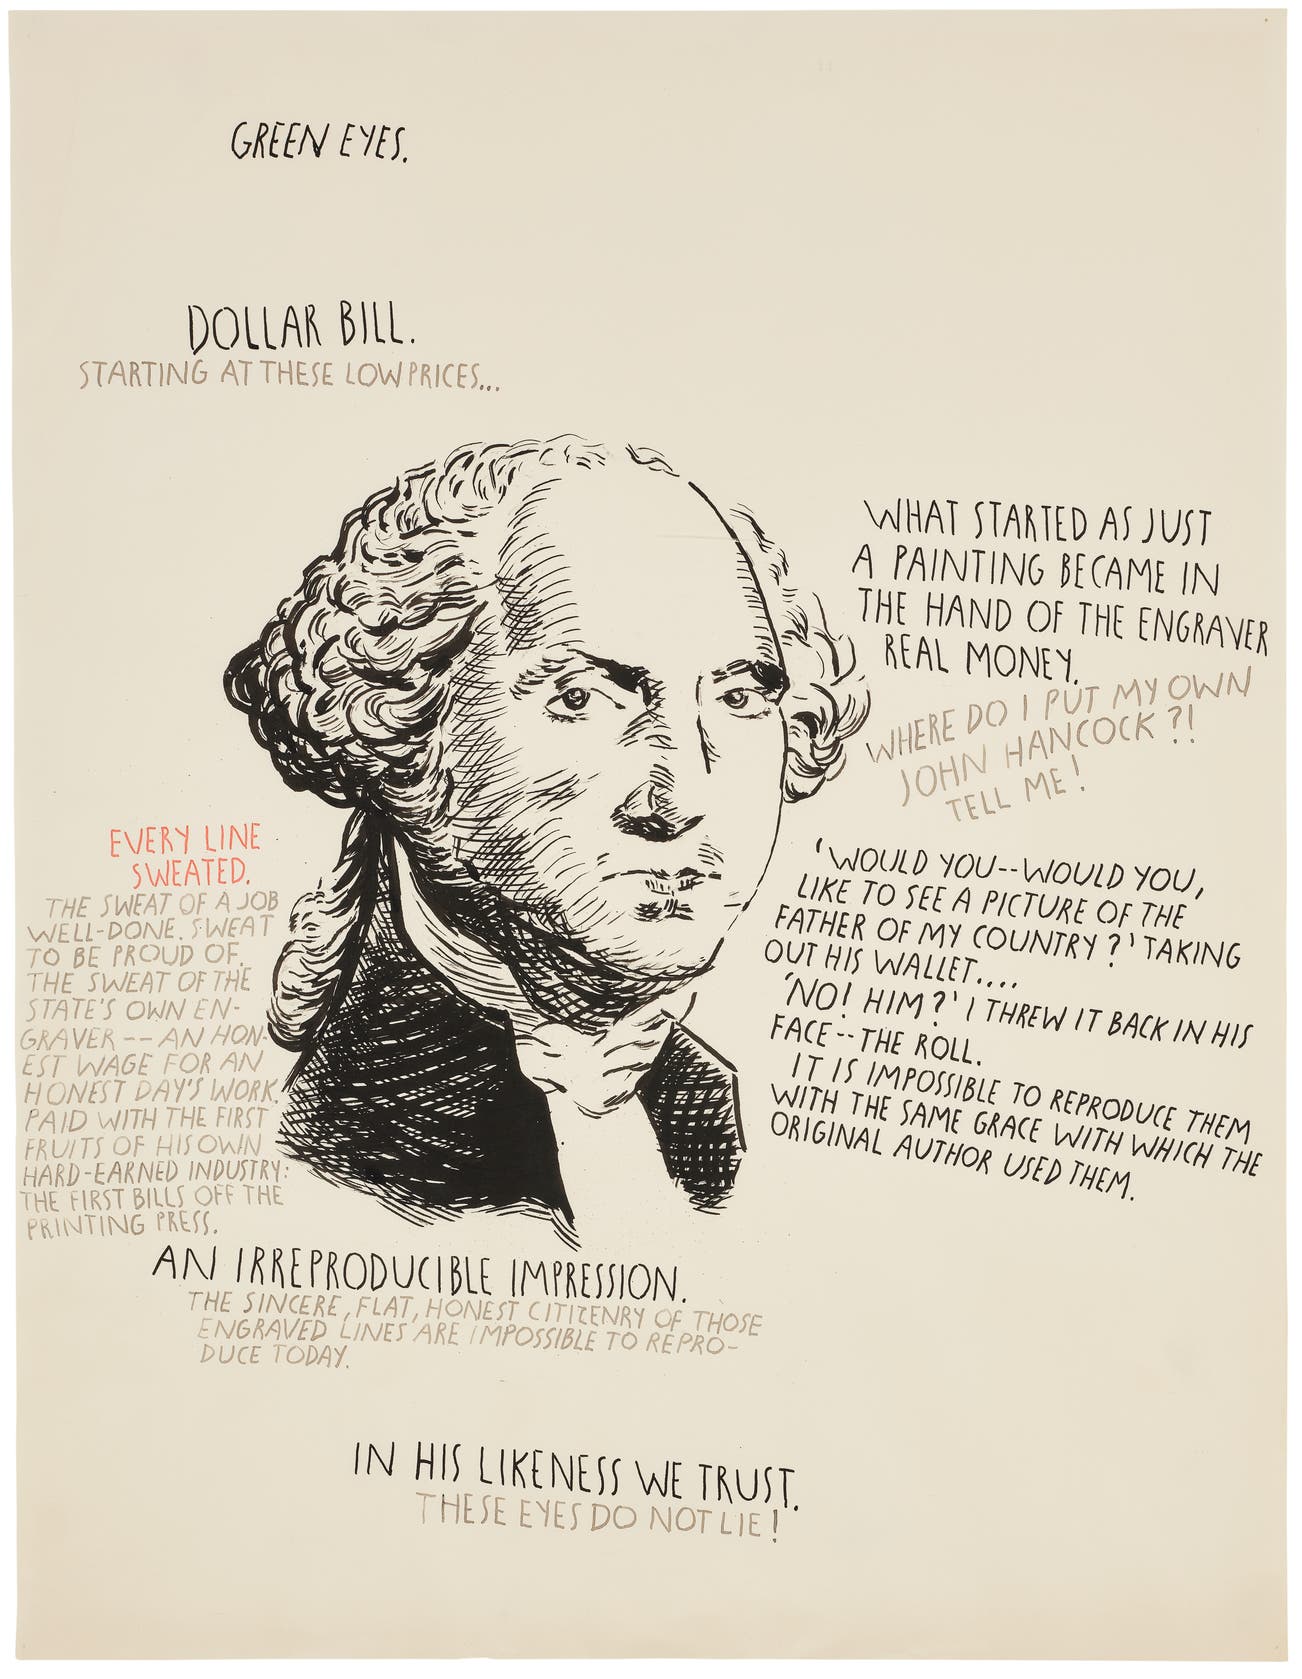 GREEN EYES.
DOLLAR BILL.
STARTING AT THESE LOW PRICES...
WHAT STARTED AS JUST
A PAINTING BECAME IN
THE HAND OF THE ENGRAVER
REAL MONEY.
WHERE DO I PUT MY OWN
JOHN HANCOCK?!
TELL ME!
EVERY LINE
SWEATED.
THE SWEAT OF A JOB
WELL-DONE. SWEAT
TO BE PROUD OF.
THE SWEAT OF THE
STATE'S OWN EN-
GRAVER -- AN HON-
EST WAGE FOR AN
HONEST DAY'S WORK.
PAID WITH THE FIRST
FRUITS OF HIS OWN
HARD-EARNED INDUSTRY:
THE FIRST BILLS OFF THE
PRINTING PRESS.
'WOULD YOU--WOULD YOU,
LIKE TO SEE A PICTURE OF THE
FATHER OF MY COUNTRY?' TAKING
OUT HIS WALLET....
'NO! HIM?' I THREW IT BACK IN HIS
FACE--THE ROLL.
IT IS IMPOSSIBLE TO REPRODUCE THEM
WITH THE SAME GRACE WITH WHICH THE
ORIGINAL AUTHOR USED THEM.
AN IRREPRODUCIBLE IMPRESSION.
THE SINCERE, FLAT, HONEST CITIZENRY OF THOSE
ENGRAVED LINES ARE IMPOSSIBLE TO REPRO-
DUCE TODAY.
IN HIS LIKENESS WE TRUST.
THESE EYES DO NOT LIE!